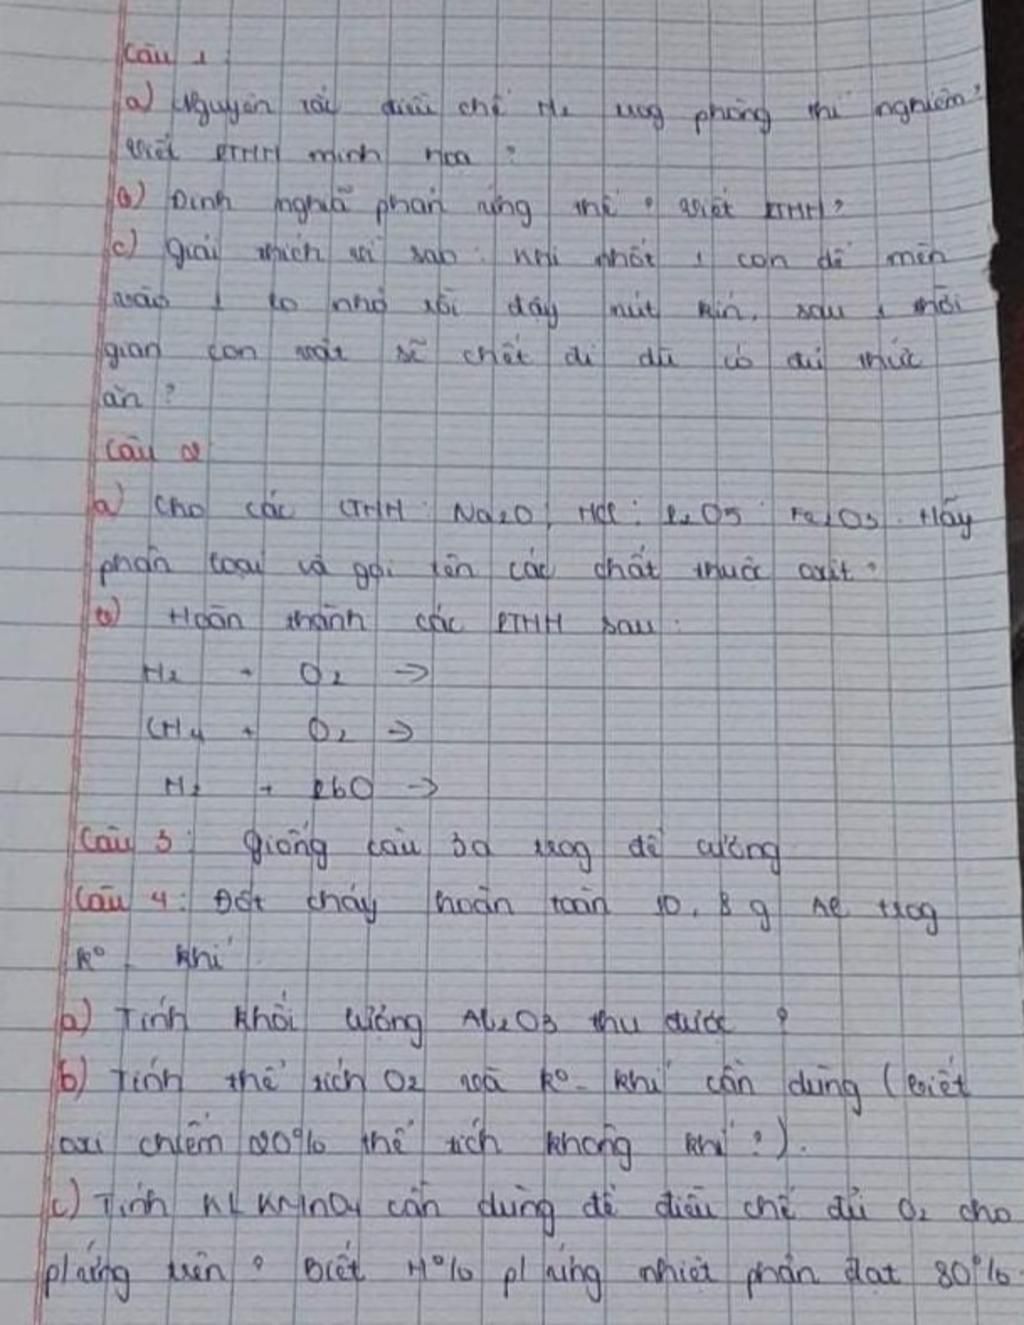 Câu 1
a) Nguyên tắc điều chế H₂ trog phòng thí nghiệm?
Viết PTHH minh họa ?
b) Định nghĩa phản ứng thế ? Viết PTHH?
c) Giải thích vì sao khi nhốt 1 con dế mèn
vào 1 lọ nhỏ rồi đậy nút kín, sau 1 thời
gian con vật sẽ chết đi dù có đủ thức
ăn ?
Câu 2
a) Cho các CTHH Na₂O, HCl; P₂O5; Fe₂O3. Hãy
phân loại và gọi tên các chất thuộc oxit?
b) Hoàn thành các PTHH sau:
H₂ + O₂ →
CH₄ + O₂ →
H₂ + PbO →
Câu 3: Giống câu 3a trog đề cương
Câu 4: Đốt cháy hoàn toàn 10,8 g Al trog
k⁰ khí
a) Tính khối lượng Al₂O3 thu được ?
b) Tính thể tích O2 và k⁰- khí cần dùng (biết
oxi chiếm 20% thể tích không khí ?).
c) Tính KL KMnO₄ cần dùng để điều chế đủ O₂ cho
p/ứng trên ? Biết H% p/ứng nhiệt phân đạt 80%